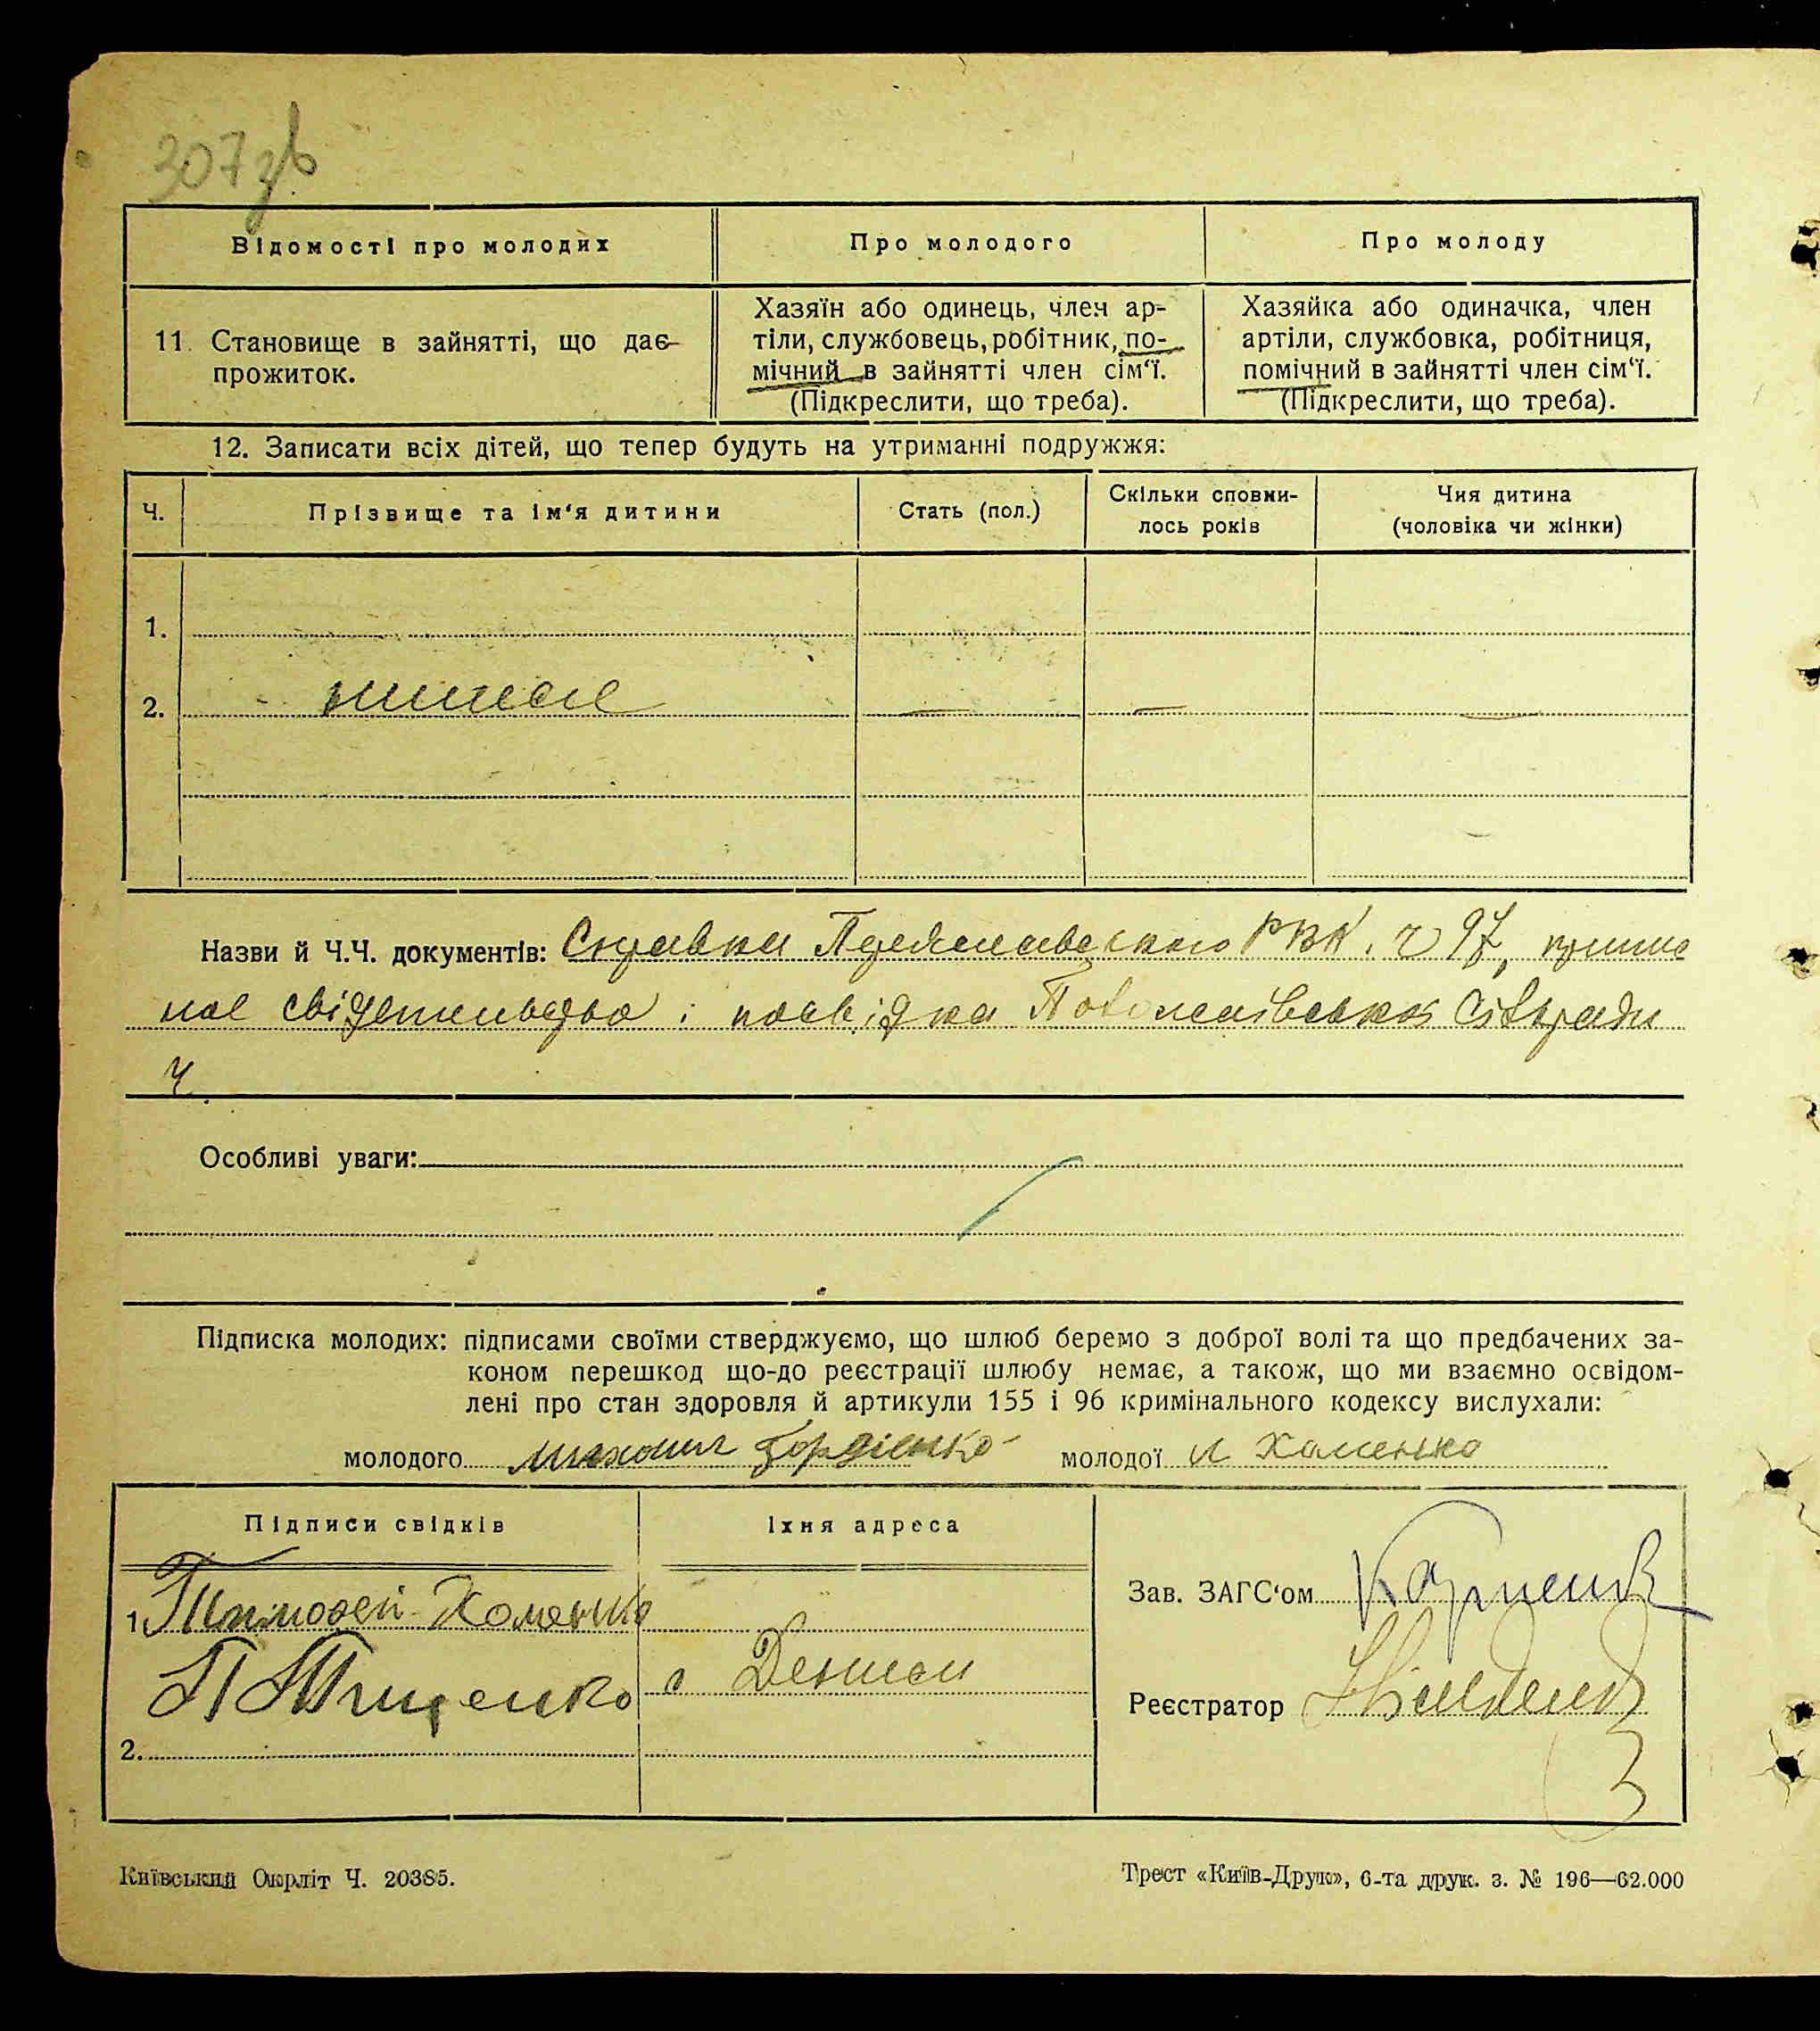 307 зв
Відомості про молодих
Про молодого
Про молоду
11. Становище в зайнятті, що дає
прожиток.
Хазяїн або одинець, член ар-
тіли, службовець, робітник, по-
мічний в зайнятті член сім‘ї.
(Підкреслити, що треба).
Хазяйка або одиначка, член
артіли, службовка, робітниця,
помічний в зайнятті член сім‘ї.
(Підкреслити, що треба).
12. Записати всіх дітей, що тепер будуть на утриманні подружжя:
Ч.
Прізвище та ім‘я дитини
Стать (пол.)
Скільки сповни-
лось років
Чия дитина
(чоловіка чи жінки)
1.
2.
Назви й Ч.Ч. документів: Справка РВК. ч 97,
і посвідка Сільради
ч.
Особливі уваги:
Підписка молодих: підписами своїми стверджуємо, що шлюб беремо з доброї волі та що предбачених за-
коном перешкод що-до реєстрації шлюбу немає, а також, що ми взаємно освідом-
лені про стан здоровля й артикули 155 і 96 кримінального кодексу вислухали:
молодого Михаил Гордієнко молодої Хоменко
Підписи свідків
Їхня адреса
1. Тимофей Хоменко
П Тищенко
с Дениси
2.
Зав. ЗАГС‘ом
Реєстратор
Київський Окрліт Ч. 20385.
Трест «Київ-Друк», 6-та друк. з. № 196—62.000